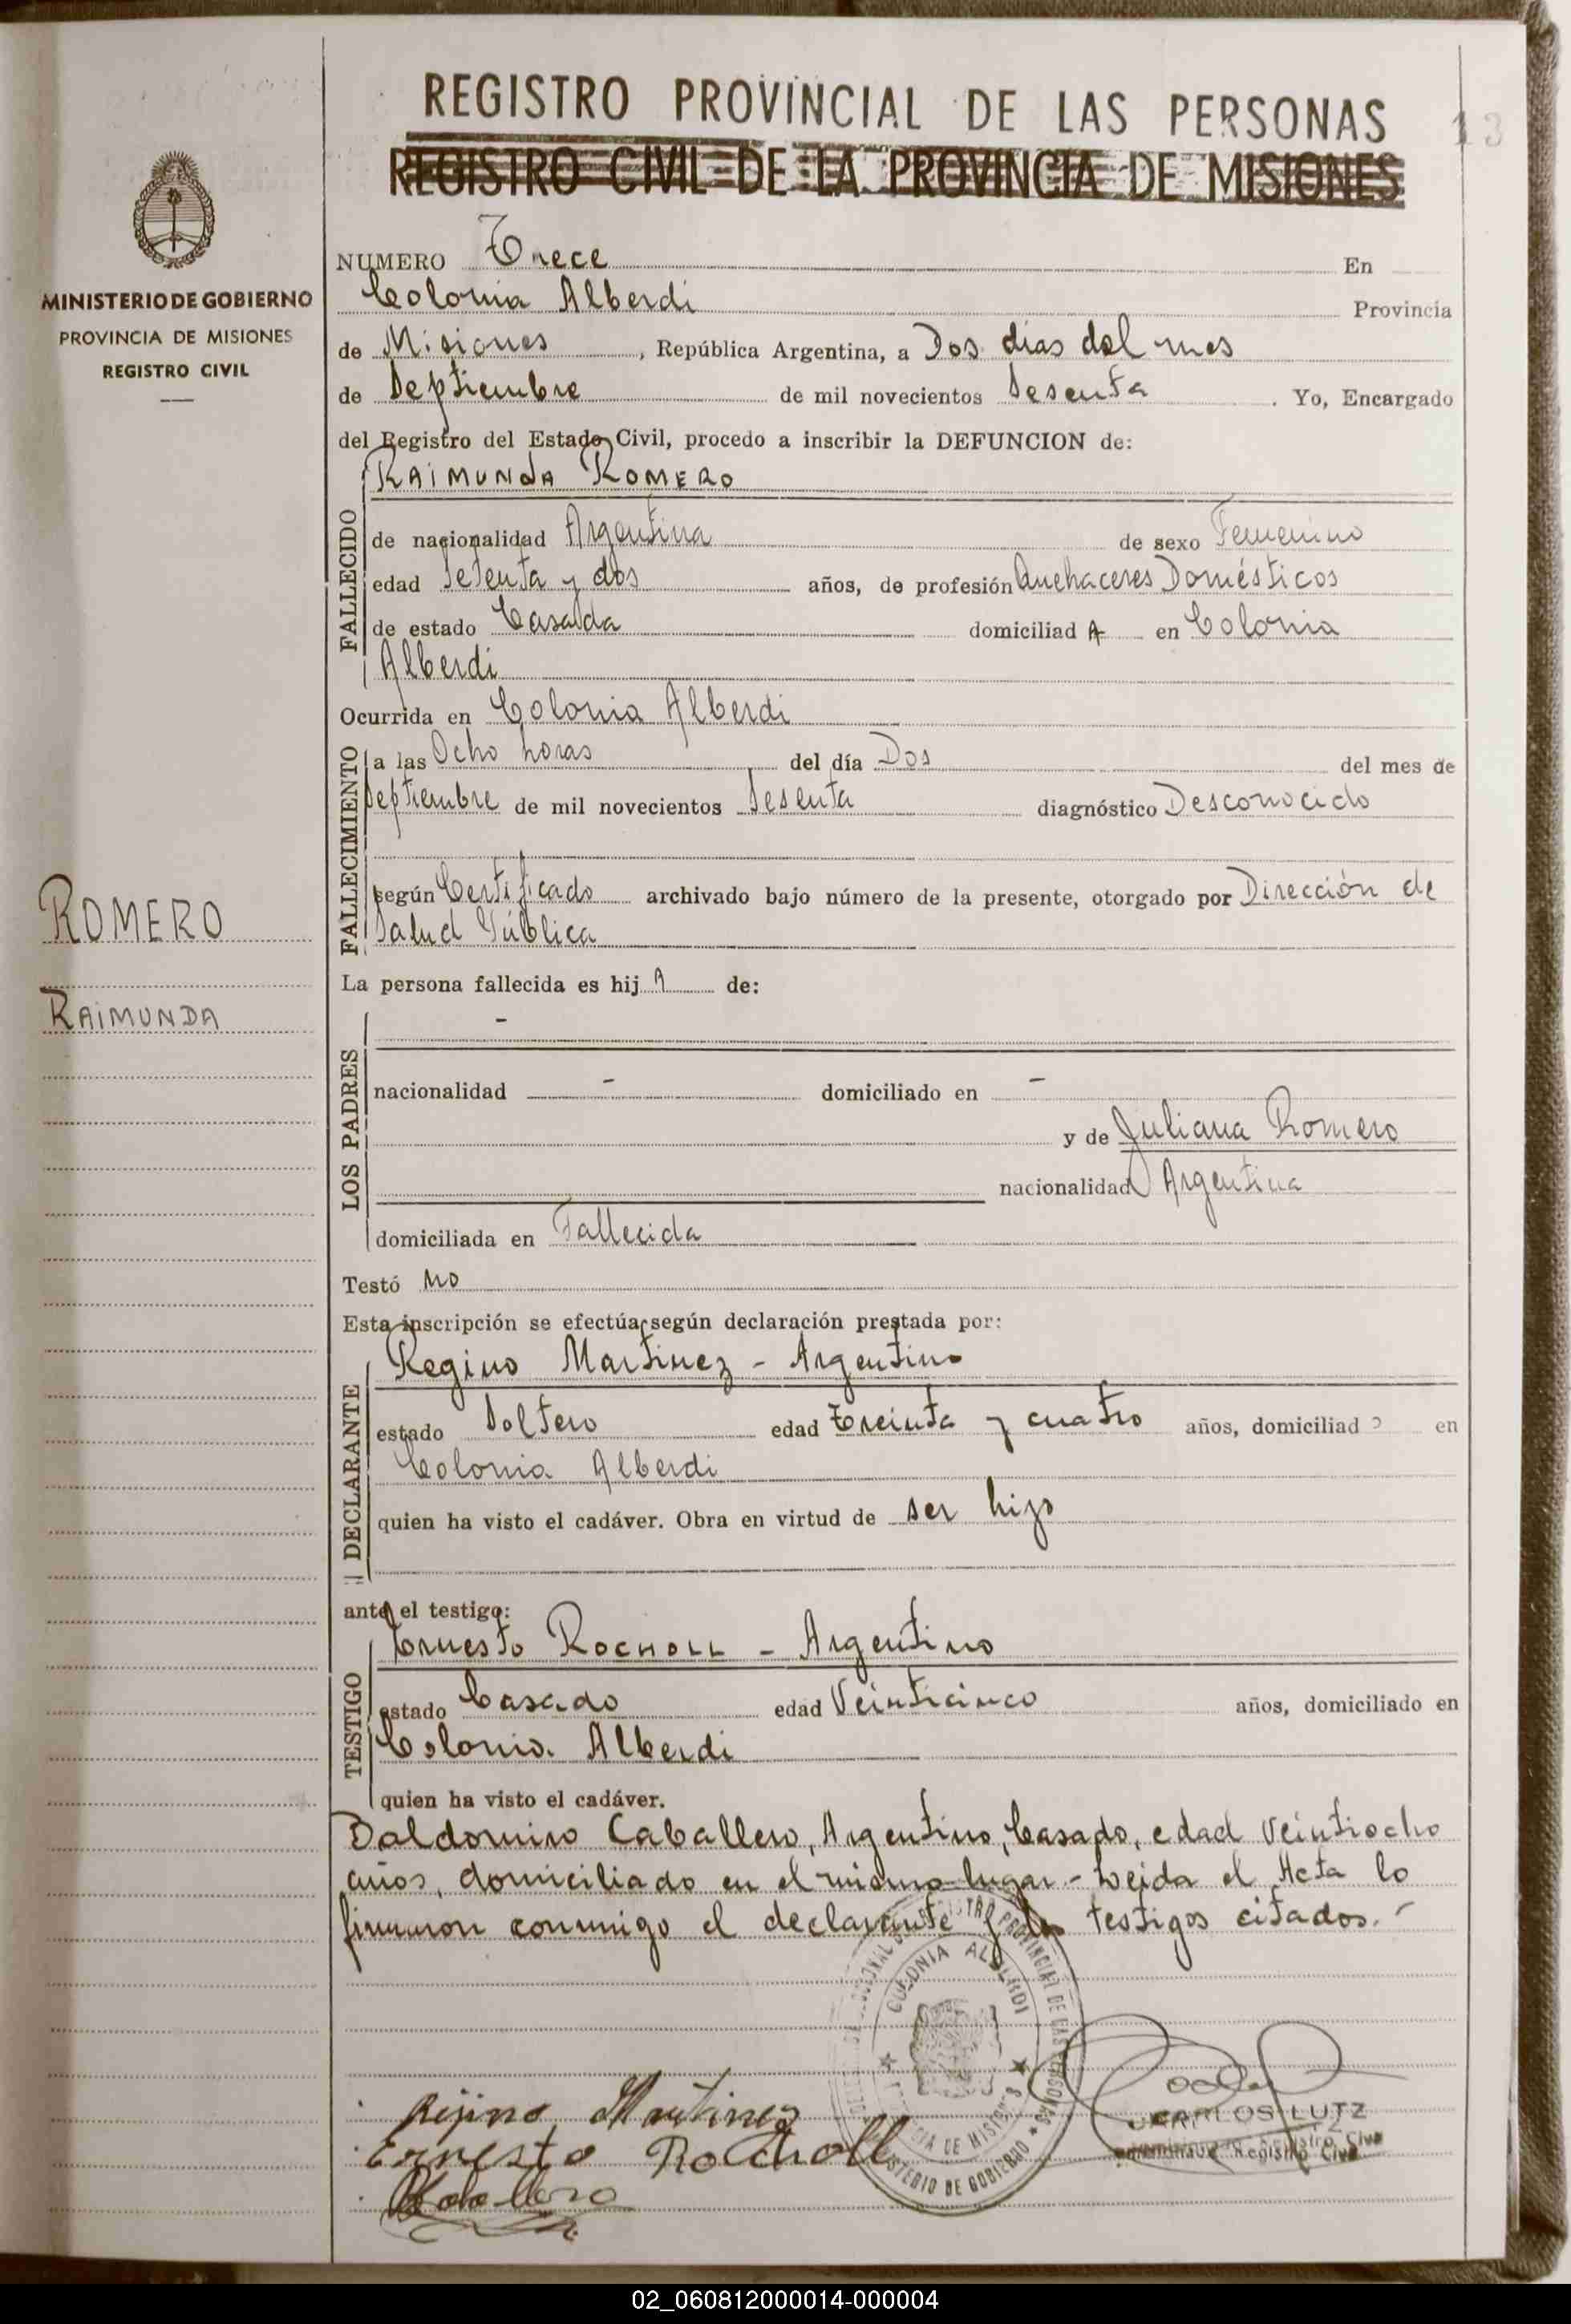 REGISTRO PROVINCIAL DE LAS PERSONAS
13
REGISTRO CIVIL DE LA PROVINCIA DE MISIONES
MINISTERIO DE GOBIERNO
PROVINCIA DE MISIONES
REGISTRO CIVIL
ROMERO
RAIMUNDA
NUMERO Trece En
Colonia Alberdi Provincia
de Misiones, República Argentina, a Dos días del mes
de Septiembre de mil novecientos Sesenta. Yo, Encargado
del Registro del Estado Civil, procedo a inscribir la DEFUNCION de:
RAIMUNDA ROMERO
FALLECIDO
de nacionalidad Argentina de sexo Femenino
edad Setenta y dos años, de profesión Quehaceres Domésticos
de estado Casada domiciliad A en Colonia
Alberdi
Ocurrida en Colonia Alberdi
FALLECIMIENTO
a las Ocho horas del día Dos del mes de
Septiembre de mil novecientos Sesenta diagnóstico Desconocido
según Certificado archivado bajo número de la presente, otorgado por Dirección de
Salud Pública
La persona fallecida es hij A de:
LOS PADRES
-
nacionalidad - domiciliado en -
y de Juliana Romero
nacionalidad Argentina
domiciliada en Fallecida
Testó No
Esta inscripción se efectúa según declaración prestada por:
DECLARANTE
Regino Martinez - Argentino
estado Soltero edad Treinta y cuatro años, domiciliad o en
Colonia Alberdi
quien ha visto el cadáver. Obra en virtud de ser hijo
ante el testigo:
TESTIGO
Ernesto ROCHOLL - Argentino
estado Casado edad Veinticinco años, domiciliado en
Colonia Alberdi
quien ha visto el cadáver.
Baldomiro Caballero, Argentino, Casado, edad Veintiocho
años, domiciliado en el mismo lugar - Leida el Acta lo
firmaron conmigo el declarante y los testigos citados. -
REGISTRO PROVINCIAL DE LAS PERSONAS
COLONIA ALBERDI
PROVINCIA DE MISIONES
MINISTERIO DE GOBIERNO
Rijino Martinez
Ernesto Rocholl
Caballero
CARLOS LUTZ
Registro Civil
02_060812000014-000004